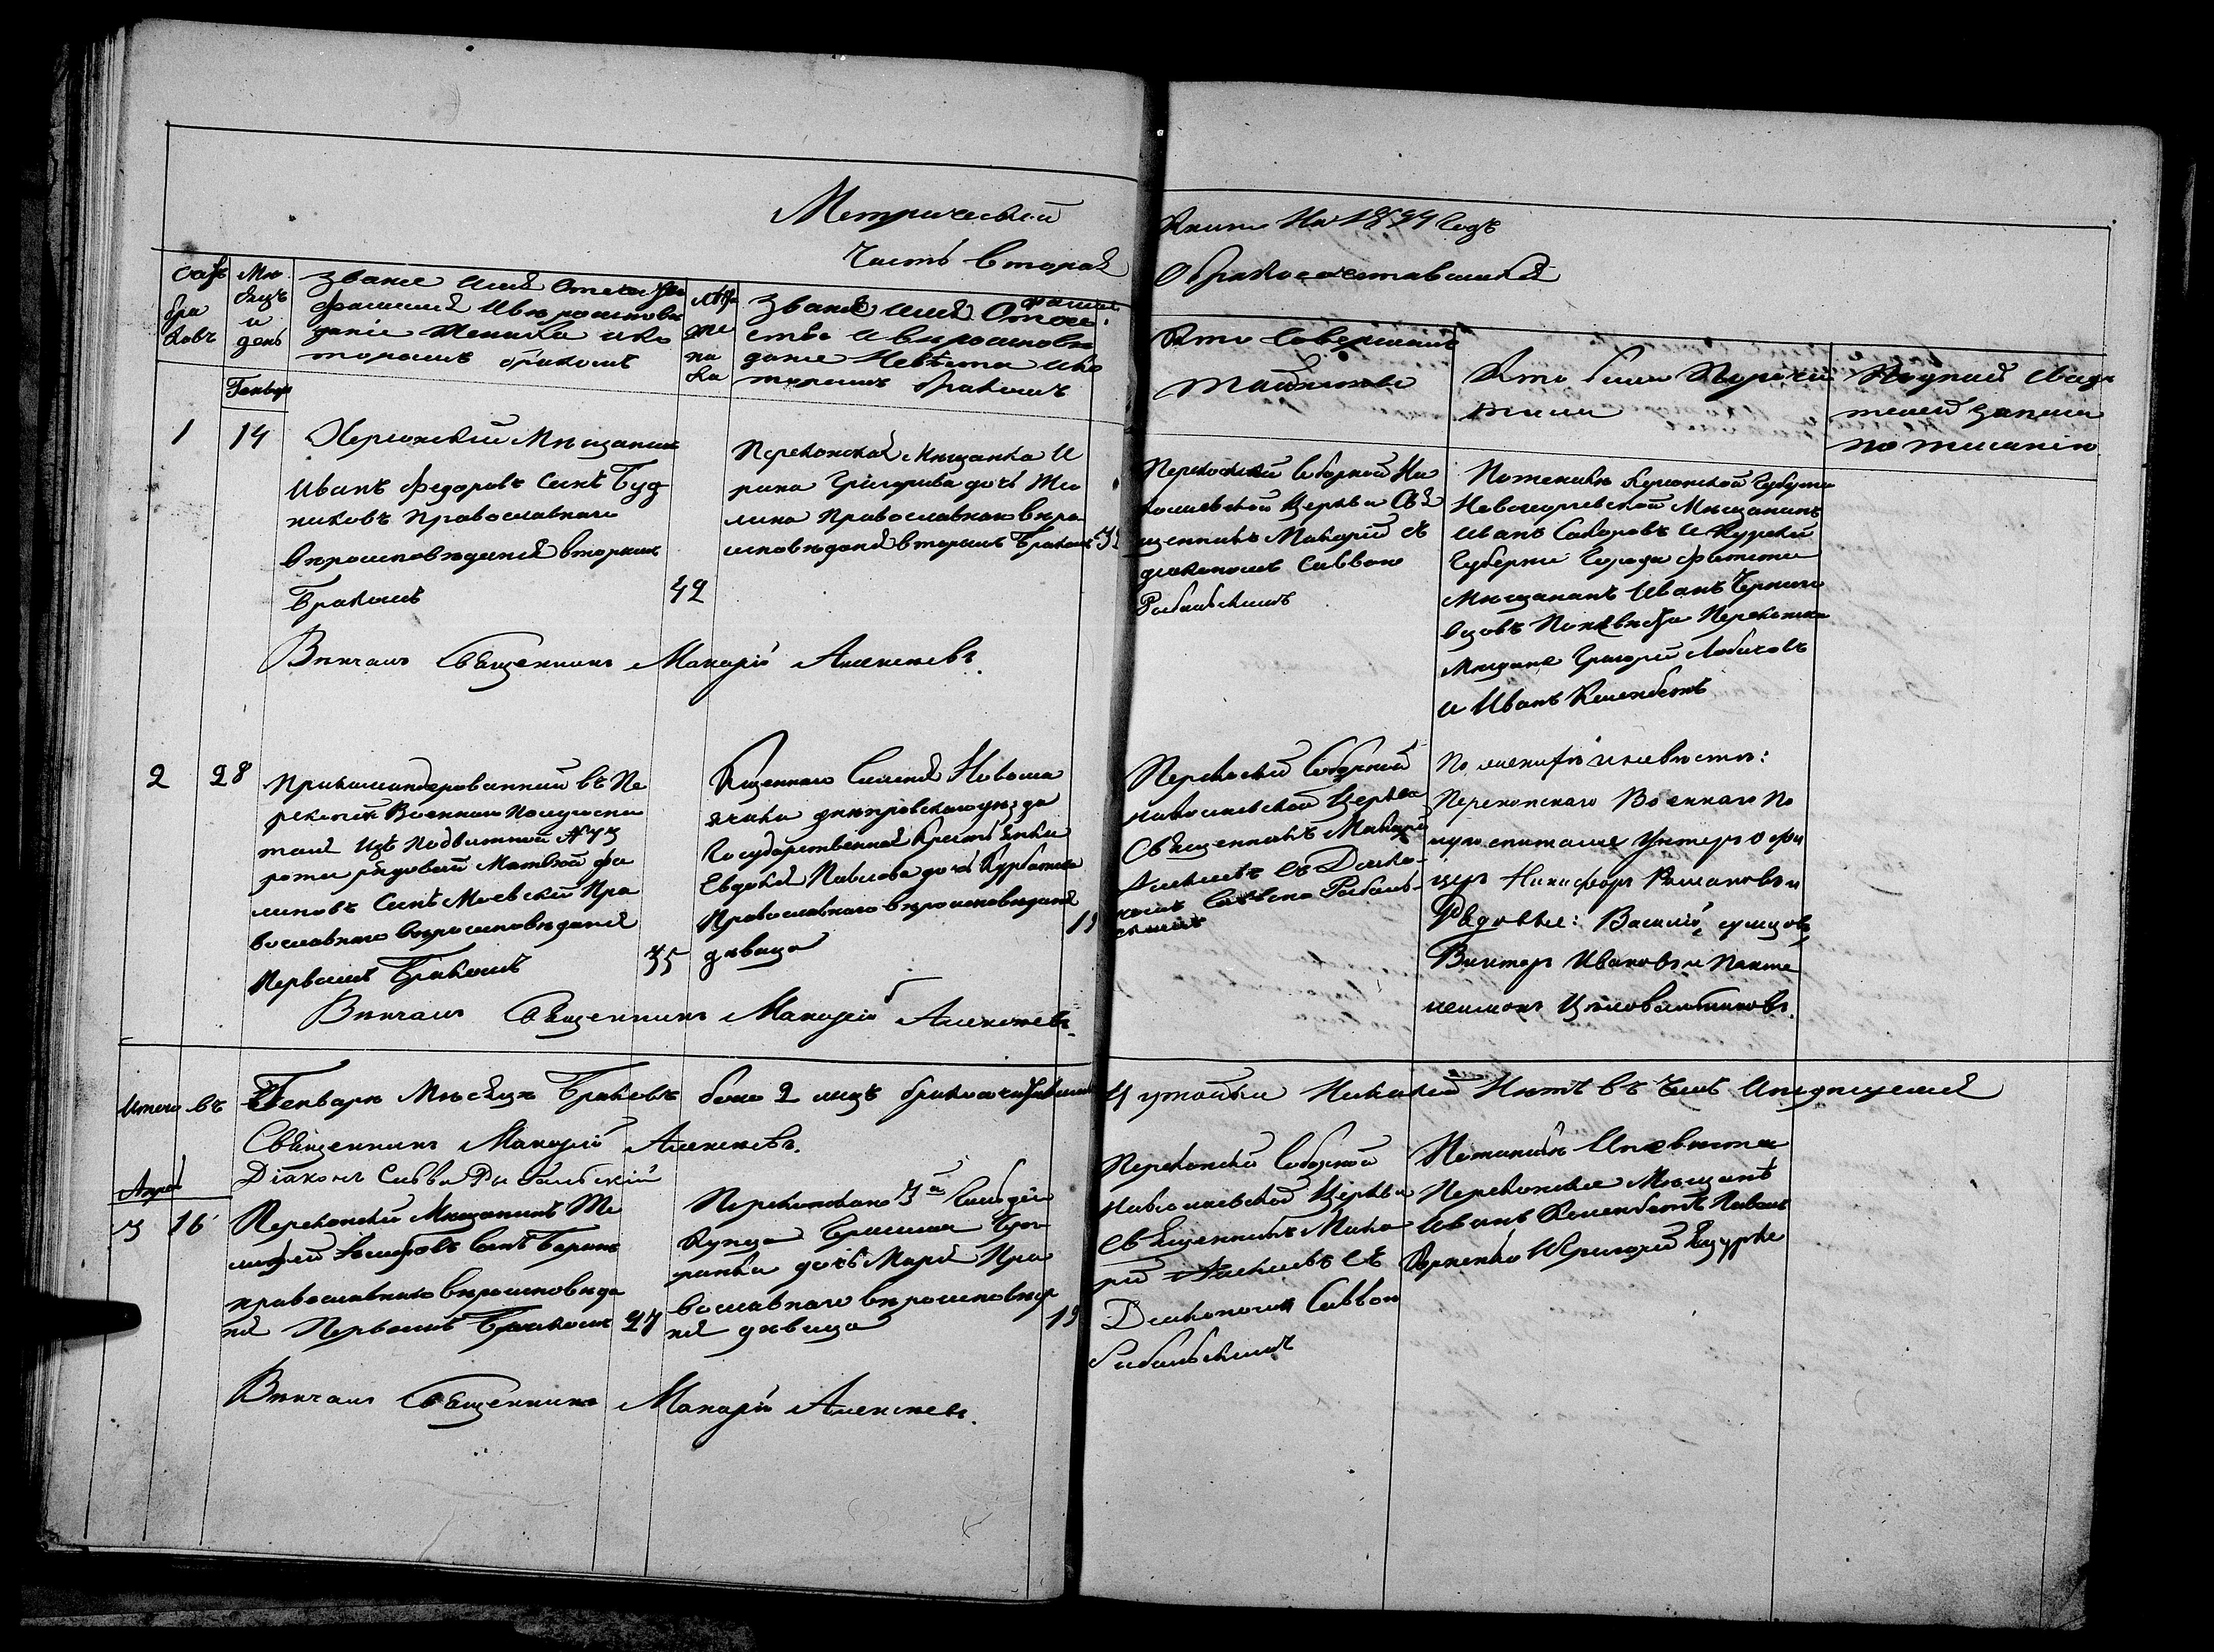 Метрической
Часть вторая
Книги На 1854 Годъ
О бракосочетавшихся
бра
ковъ
Мѣ
сяцъ
и
день
Званіе Имя Отечество
фамилия Ивѣроисповѣ
даніе Жениха ико
торымъ бракомъ
же
ни
ха
Званіе имя Отече
ство и вѣроисповѣ
даніе Невѣсты ико
торымъ бракомъ
Кто Совершалъ
таинство
Кто были Поручи
тели
Подписи свиде
телей записи
по желанію
Генваря
1
14
Херсонский Мѣщанинъ
Иванъ Федоровъ Сынъ Буд
никовъ Православнаго
Вѣроисповѣданія вторымъ
бракомъ
42
Перекопская Мѣщанка И
рина Григорьева дочь
Православнаго вѣро
исповѣданія вторымъ бракомъ
Перекопской Соборной Ни
колаевской Церкви Свя
щенникъ Макарій съ
диакономъ Саввою
Рыбальскимъ
По женихѣ Херсонской Губерніи
Новогеоргиевской Мѣщанинъ
Иванъ Сидоровъ и Курской
Губерніи Города Фатежа
Мѣщанинъ Иванъ
По невѣстѣ Перекопские
Мѣщане Григорій Лобачовъ
и Иванъ Келембетъ
Вѣнчалъ Священникъ Макарій Алексѣевъ.
2
28
Прикомандерованный въ Пе
рекопский Военный Полугоспи
таль Изъ Подвижной №43
роты рядовой Матвѣй Фа
Сынъ Маевский Пра
вославнаго вѣроисповѣданія
Первымъ Бракомъ
35
Казеннаго Селения Новома
ячки днѣпровского уѣзда
Государственная Крестьянка
Евдокия Павлова дочь Курбатова
Православнаго вѣроисповѣданія
дѣвица
19
Перекопской Соборной
николаевской Церкви
Священникъ Макарій
Алексѣевъ съ Диако-
номъ Саввою Рыбаль-
скимъ
По женихѣ и невѣстѣ:
Перекопскаго Военнаго По
лугоспиталя Унтеръ офи
церъ Никифоръ Романовъ и
Рядовые: Василій
Викторъ Ивановъ и Панте
леимонъ Целовальниковъ.
Вѣнчалъ Священникъ Макарій Алексѣевъ.
Итого въ Генварѣ Мѣсяцѣ Браковъ было 2 лицъ бракосочетавшихся 4 утайки Никакой Нѣтъ въ чемъ Иподписуемся
Священникъ Макарій Алексѣевъ.
Діаконъ Савва Рыбальскій
Апрель
3
16
Перекопский Мѣщанинъ Ти
мофей Иосифовъ Сынъ Баранъ
православнаго вѣроисповѣда
ния Первымъ Бракомъ
27
Перекопскаго 3й Гильдіи
Купца Герасима
дочь Мария Пра
вославнаго вѣроисповѣда
ния дѣвица
19
Перекопской Соборной
николаевской Церкви
священникъ Мака
рий Алексѣевъ съ
Диакономъ Саввою
Рыбальскимъ
По женихѣ Иневѣстѣ
Перекопские Мѣщане
Иванъ Келембетъ Павелъ
Корненко И Григорій
Вѣнчалъ Священникъ Макарій Алексѣевъ.